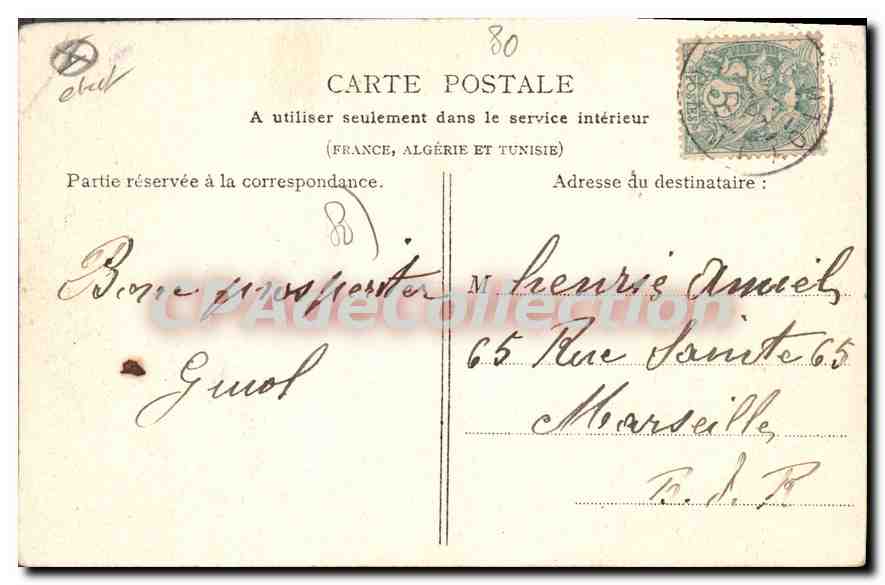 80
CARTE POSTALE
A utiliser seulement dans le service intérieur
(FRANCE, ALGÉRIE ET TUNISIE)
Partie réservée à la correspondance.
80
Bone prosperiter
Adresse du destinataire :
M henrie Amiel
65 Rue Sainte 65
Marseille
B. d. R
CPAdeCollection